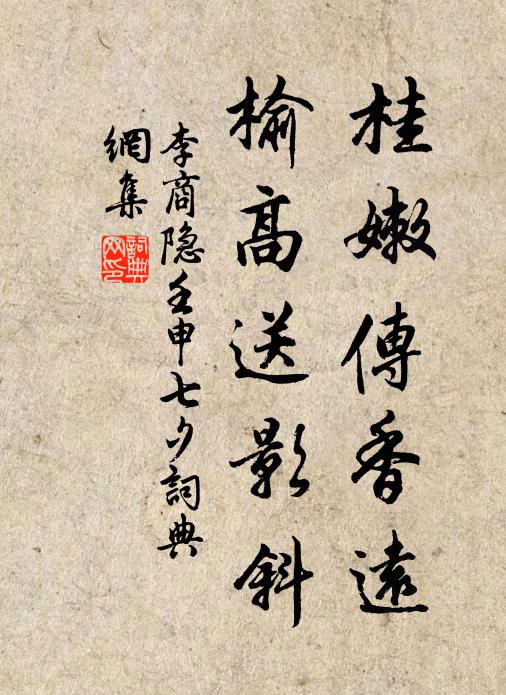 桂嫩傳香遠
榆高送影斜
李商隐壬申七夕詞典
網集
詞典網印